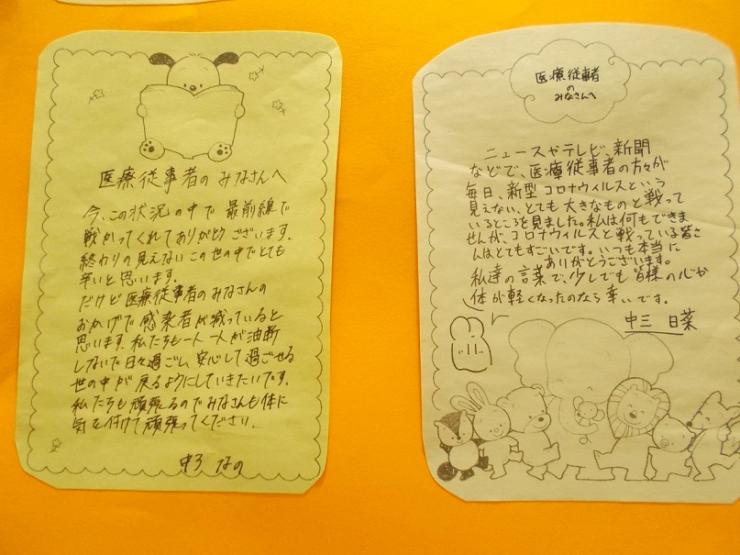 医療従事者のみなさんへ
今、この状況の中で最前線で
戦かってくれてありがとうございます。
終わりの見えないこの世の中でとても
辛いと思います。
だけど医療従事者のみなさんの
おかげで感染者が減っていると
思います。私たちも一人一人が油断
しないで日々過ごし、安心して過ごせる
世の中が戻るようにしていきたいです。
私たちも頑張るのでみなさんも体に
気を付けて頑張ってください。
中3 なの
医療従事者
の
みなさんへ
ニュースやテレビ、新聞
などで、医療従事者の方々が
毎日、新型コロナウィルスという
見えない、とても大きなものと戦って
いるところを見ました。私は何もできま
せんが、コロナウィルスと戦っている皆さ
んはとてもすごいです。いつも本当に
ありがとうございます。
私達の言葉で、少しでも皆様の心か
体が軽くなったのなら幸いです。
中三 日菜